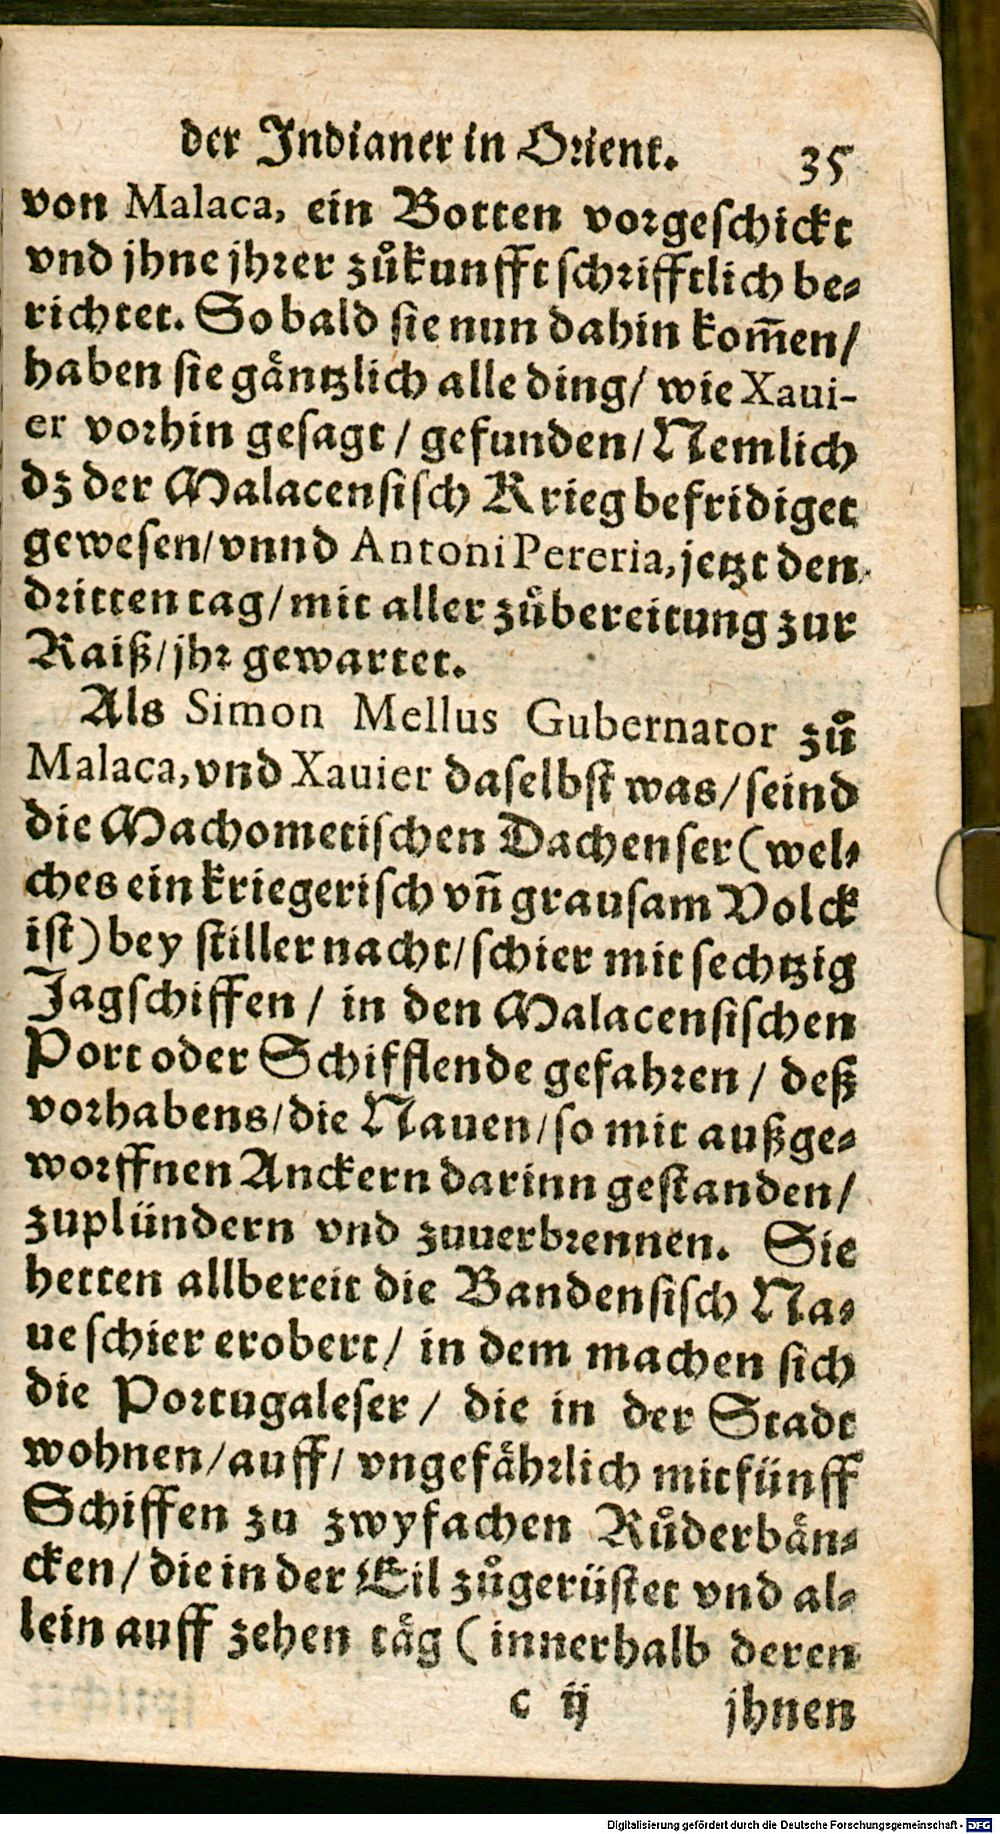 der Indianer in Orient. 35
von Malaca, ein Botten vorgeschickt
vnd jhne jhrer zůkunfft schrifftlich be-
richtet. So bald sie nun dahin kom̅en/
haben sie gåntzlich alle ding/ wie Xaui-
er vorhin gesagt / gefunden/ Nemlich
dz der Malacensisch Krieg befridiget
gewesen/ vnnd Antoni Pereria, jetzt den
dritten tag/ mit aller zůbereitung zur
Raiß/ jhr gewartet.
Als Simon Mellus Gubernator zů
Malaca, vnd Xauier daselbst was/ seind
die Machometischen Dachenser (wel-
ches ein kriegerisch vn̅ grausam Volck
ist) bey stiller nacht/ schier mit sechtzig
Jagschiffen / in den Malacensischen
Port oder Schifflende gefahren / deß
vorhabens/ die Nauen/ so mit außge-
worffnen Anckern darinn gestanden/
zuplündern vnd zuuerbrennen. Sie
hetten allbereit die Bandensisch Na-
ue schier erobert/ in dem machen sich
die Portugaleser / die in der Stadt
wohnen/ auff/ vngefåhrlich mit fünff
Schiffen zu zwyfachen Růderbån-
cken/ die in der Eil zůgerüstet vnd al-
lein auff zehen tåg (innerhalb deren
c ij jhnen
Digitalisierung gefördert durch die Deutsche Forschungsgemeinschaft - DFG